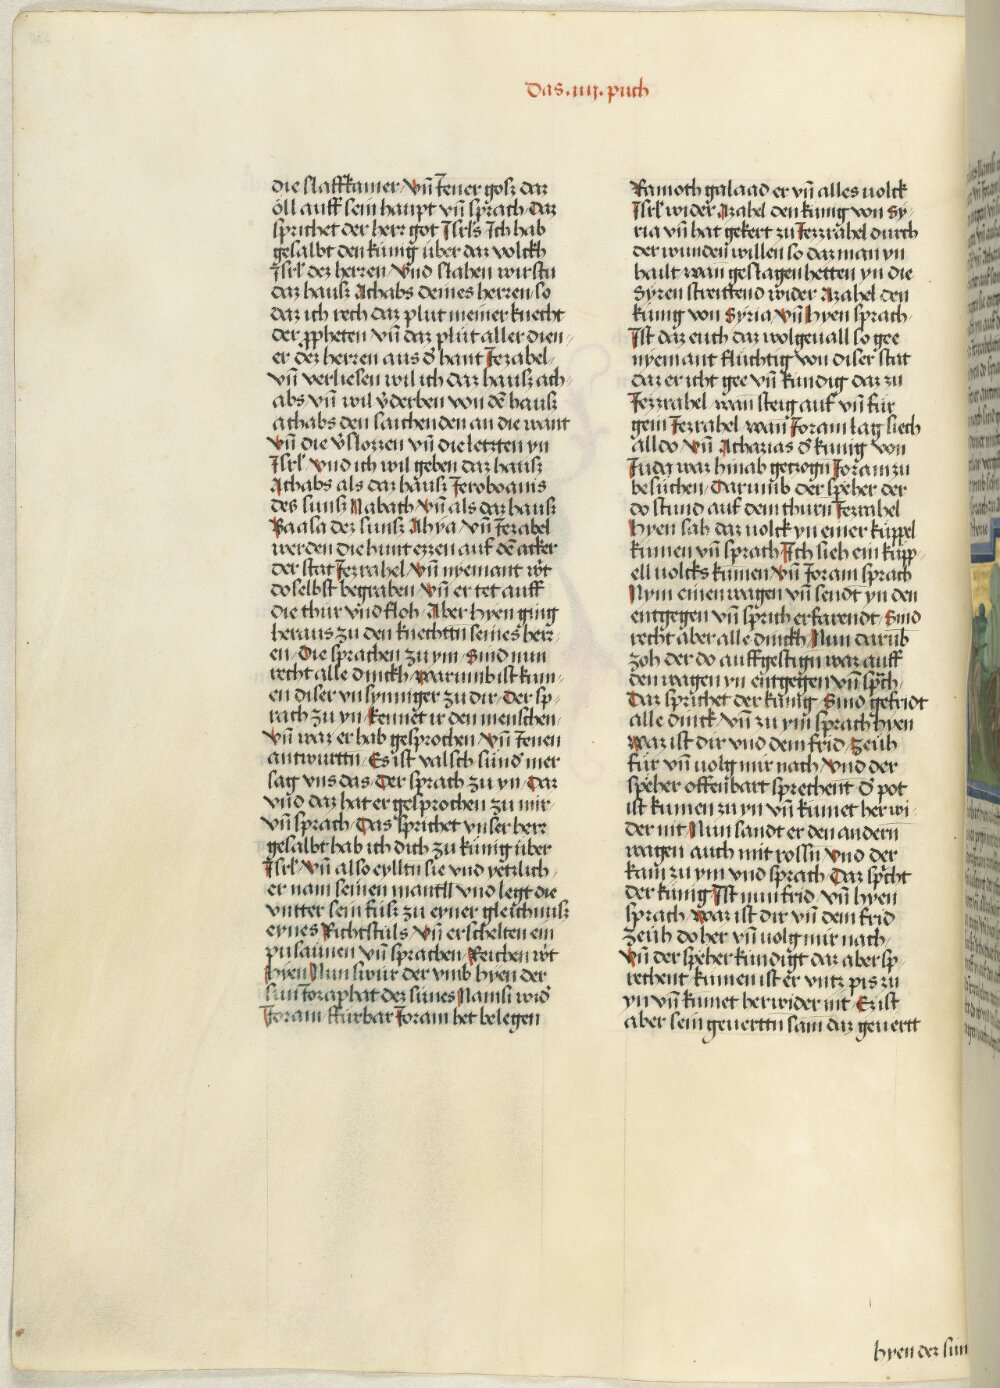 Das .iiij. puch
die slaffkamer / vn̄ Jener gosz daz
öll auff sein haupt vn̄ sprach / daz
sprichet der herr got Isrl's Ich hab
gesalbt den kunig über daz volckh
Isrl' dez herren / Vnd slahen wirstu
daz hausz Achabs deines herren so
daz ich rech daz plut meiner knecht
der ꝓpheten vn̄ daz plůt aller dien-
er dez herren aus d' hant Jezabel /
vn̄ verliesen wil ich daz hausz ach-
abs vn̄ wil v'derben von dē hausz
achabs den saichenden an die want
Vn̄ die v'slozzen vn̄ die letzten yn
Isrl' Vnd ich wil geben daz hausz
Achabs als daz hausz Jeroboams
des sunsz Nabath / Vn̄ als daz hausz
Baasa dez sunsz Ahya / Vn̄ Jezabel
werden die hunt ezzen auf dē acker
der stat Jezrahel / Vn̄ nyemant wt
doselbst begraben / Vn̄ er tet auff
die thur vnd floh / Aber hyen ging
heraus zu den knechttn seines herr-
en / Die sprachen zu ym / Sind nun
recht alle dinckh / Warumb ist kum-
en diser vnsynniger zu dir / Der sp-
rach zu yn / kennet ir den menschen /
Vn̄ waz er hab gesprochen / Vn̄ Jenen
antwurttn / Es ist valsch sund' mer
sag vns das / Der sprach zu yn / Daz
vnd daz hat er gesprochen zu mir /
Vn̄ sprach / Das sprichet vnser herr
gesalbt hab ich dich zu kunig über
Isrl' / Vn̄ also eylltn sie vnd yetzlich-
er nam seinen mantll vnd legt die
vntter sein füsz zu eyner gleichnusz
eynes Richtstuls / Vn̄ erschelten ein
pusaunen vn̄ sprachen / Reichen wt
hyen / Nun swur der vmb hyen der
sun Jozaphat dez sunes Namsi wid'
Joram / ffürbaz Joram het belegen
Ramoth galaad er vn̄ alles volck
Isrl' wider Azahel den kunig von Sy-
ria vn̄ hat gekert zu Jezzrahel durch
der wunden willen so daz man yn
hailt wan geslagen hetten yn die
Syren streittend wider Azahel den
kunig von Syria / Vn̄ hyen sprach /
Ist daz euch daz wolgeuall so gee
nyemant flüchtig von diser stat
daz er icht gee vn̄ kundig daz zu
Jezzrahel / wan steig auf vn̄ für
gein Jezrahel / wan Joram lag siech
alldo / Vn̄ Acharias d' kunig von
Juda waz hinab getzogn Joram zu
besuchen / Darumb der speher der
do stund auf dem thurn Jezrahel
hyen sah daz volck yn einer kuppel
kumen vn̄ sprach / Ich sieh ein kupp-
ell volcks kumen / Vn̄ Joram sprach
Nym einen wagen vn̄ sendt yn den
entgegen vn̄ sprich er farendt / Sind
recht aber alle dinckh / Nun darüb
zoh der do auffgestign waz auff
den wagen yn entgegen vn̄ sp̄ch /
Daz sprichet der kunig / Sind gefridt
alle dinck / Vn̄ zu ym sprach hyen
Waz ist dir vnd dem frid / Zeüh
für vn̄ volg mir nach / Vnd der
speher offenbart sprechent d' pot
ist kumen zu yn vn̄ kumet her wi-
der nit / Nun sandt er den andern
wagen auch mit rossn̄ / Vnd der
kam zu ym vnd sprach / Daz sp̄cht
der kunig / Ist nun frid / Vn̄ hyen
sprach / Waz ist dir vn̄ dem frid
Zeüh doher vn̄ volg mir nach /
Vn̄ der speher kundigt daz aber sp-
rechent kumen ist er vntz pis zu
yn vn̄ kumet her wider nit / Ez ist
aber sein geuerttn sam daz geuertt
hyen dez sun